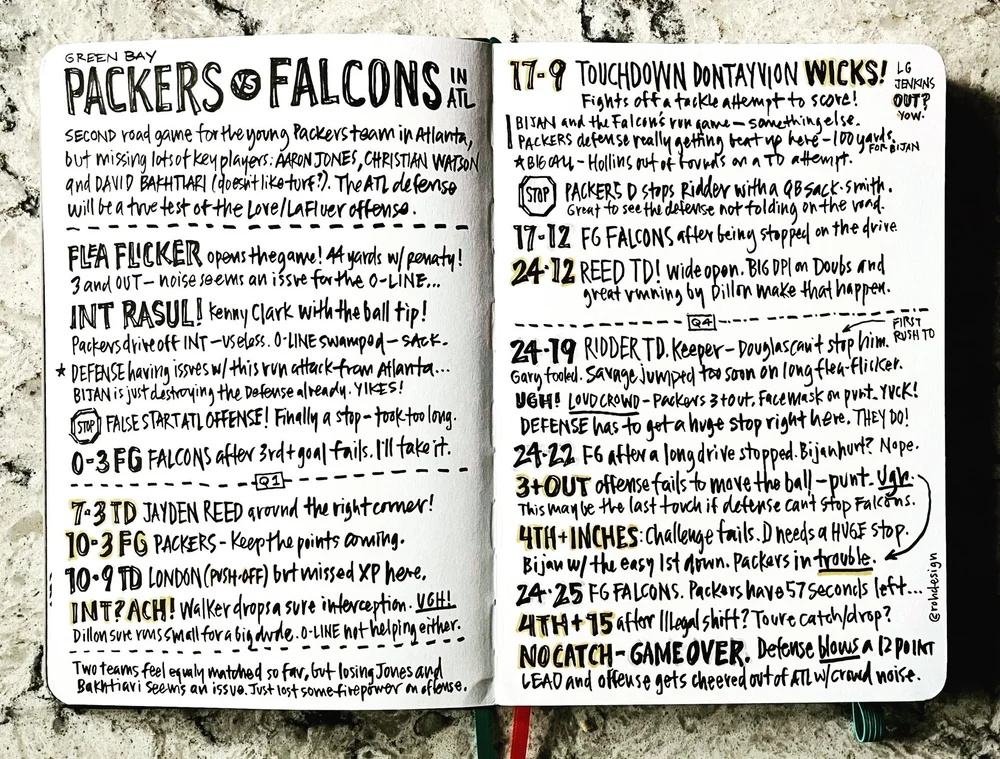 GREEN BAY
PACKERS VS FALCONS IN ATL
SECOND road game for the young Packers team in Atlanta,
but missing lots of key players: AARON JONES, CHRISTIAN WATSON
and DAVID BAKHTIARI (doesn't like turf?). The ATL defense
will be a true test of the Love/LaFluer offense.
FLEA FLICKER opens the game! 44 yards w/ penaty!
3 and OUT - noise seems an issue for the O-LINE...
INT RASUL! Kenny Clark with the ball tip!
Packers drive off INT - useless. O-LINE swamped - SACK.
★ DEFENSE having issues w/ this run attack from Atlanta...
BIJAN is just destroying the Defense already. YIKES!
STOP FALSE START ATL OFFENSE! Finally a stop - took too long.
0-3 FG FALCONS after 3rd + goal fails. I'll take it.
Q1
7-3 TD JAYDEN REED around the right corner!
10-3 FG PACKERS - Keep the points coming.
10-9 TD LONDON (PUSH-OFF) but missed XP here.
INT? ACH! Walker drops a sure interception. UGH!
Dillon sure runs small for a big dude. O-LINE not helping either.
Two teams feel equaly matched so far, but losing Jones and
Bakhtiari seems an issue. Just lost some firepower on offense.
17-9 TOUCHDOWN DONTAYVION WICKS!
Fights off a tackle attempt to score!
LG
JENKINS
OUT?
YOW.
BIJAN and the Falcon's run game - something else.
PACKERS defense really getting beat up here - 100 yards
FOR BIJAN
★ BIG CALL - Hollins out of bounds on a TD attempt.
STOP PACKERS D stops Ridder with a QB sack. Smith.
Great to see the defense not folding on the road.
17-12 FG FALCONS after being stopped on the drive
24-12 REED TD! wide open. BIG DPI on Doubs and
great running by Dillon make that happen.
Q4
FIRST
RUSH TD
24-19 RIDDER TD. Keeper - Douglas can't stop him.
Gary fooled. Savage jumped too soon on long flea-flicker.
UGH! LOUD CROWD - Packers 3+out. Facemask on punt. YUCK!
DEFENSE has to get a huge stop right here. THEY DO!
24-22 FG after a long drive stopped. Bijan hurt? Nope.
3+OUT offense fails to move the ball - punt. Ugh.
This may be the last touch if defense can't stop Falcons.
4TH + INCHES: Challenge fails. D needs a HUGE stop.
Bijan w/ the easy 1st down. Packers in trouble.
24-25 FG FALCONS. Packers have 57 seconds left...
4TH + 15 after Illegal shift? Toure catch/drop?
NO CATCH - GAME OVER. Defense blows a 12 POINT
LEAD and offense gets cheered out of ATL w/ crowd noise.
@rohdesign